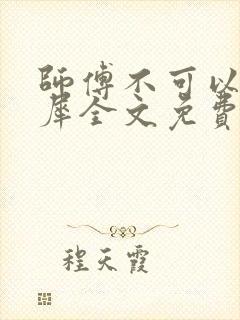 師傅不可以
犀全文免費
程天霞